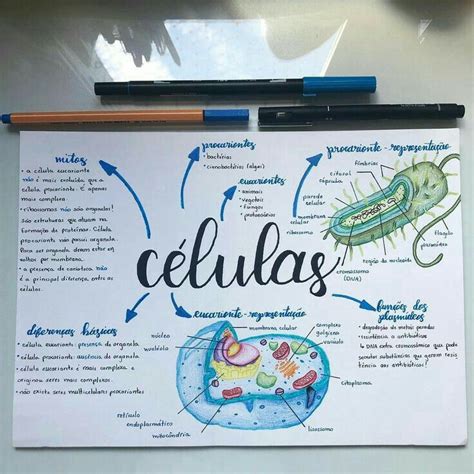 mitos
• a célula eucarionte
não é mais evoluída que a
célula procarionte. É apenas
mais complexa
• ribossomos não são organelas!
São estruturas que atuam na
formação de proteínas. Célula
procarionte não possui organela.
Para ser organela, deve estar en
volta por membrana.
• a presença de carioteca não
é a principal diferença entre as
células.
procariontes
• bactérias
• cianobactérias (algas)
eucariontes
• animais
• vegetais
• fungos
• protozoários
procarionte - representação
fímbrias
citosol
cápsula
parede
celular
membrana
celular
ribossomo
cromossomo
(DNA)
região do nucleoide
flagelo
plasmídeo
células
diferenças básicas
• célula eucarionte: presença de organela
• célula procarionte: ausência de organela
• célula eucarionte é mais complexa e
origina seres mais complexos.
• não existe seres multicelulares procariontes
eucarionte - representação
núcleo
nucléolo
membrana celular
complexo
golgiense
vacúolo
citoplasma
lisossomo
mitocôndria
retículo
endoplasmático
funções dos
plasmídeos
• degradação de metais pesados
• resistência a antibióticos
↳ DNA extra cromossômico que pode
senter substâncias que gerem resis
tência aos antibióticos!